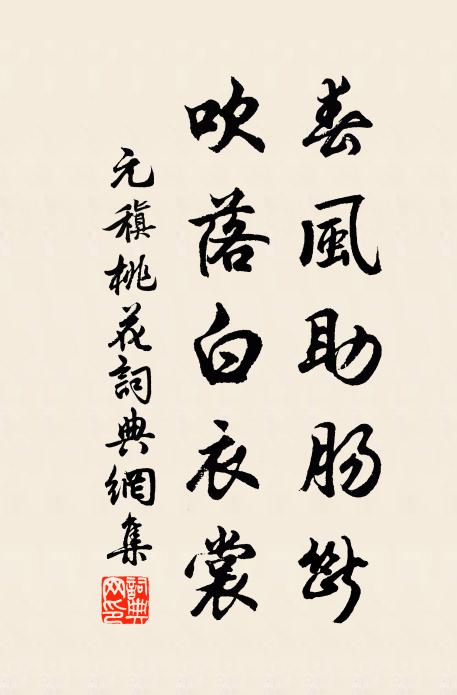 春風助肠斷
吹落白衣裳
元稹桃花詞典網集
詞典网印